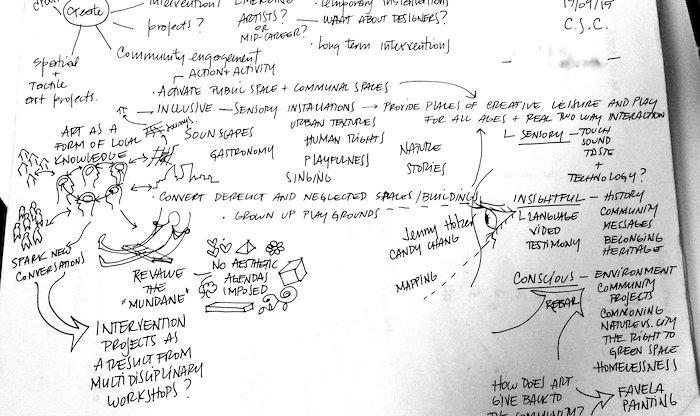 Create
INTERVENTION
PROJECTS?
EMERGING
ARTISTS?
OR
MID-CAREER?
TEMPORARY INSTALLATIONS
WHAT ABOUT DESIGNERS?
LONG TERM INTERVENTIONS
17/09/15
C.S.C.
SPATIAL
+
TACTILE
ART PROJECTS.
COMMUNITY ENGAGEMENT
ACTION + ACTIVITY
• ACTIVATE PUBLIC SPACE + COMMUNAL SPACES
• INCLUSIVE — SENSORY INSTALLATIONS → PROVIDE PLACES OF CREATIVE LEISURE AND PLAY
FOR ALL AGES + REAL TWO WAY INTERACTION
SOUNSCAPES
URBAN TEXTURES
HUMAN RIGHTS
GASTRONOMY
PLAYFULNESS
SINGING
NATURE
STORIES
SENSORY — TOUCH
SOUND
TASTE
+
TECHNOLOGY?
ART AS A
FORM OF LOCAL
KNOWLEDGE
• CONVERT DERELICT AND NEGLECTED SPACES/BUILDING
• GROWN UP PLAYGROUNDS
INSIGHTFUL — HISTORY
LANGUAGE
VIDEO
TESTIMONY
COMMUNITY
MESSAGES
BELONGING
HERITAGE
Jenny Holzer
CANDY CHANG
MAPPING
SPARK NEW
CONVERSATIONS
REVALUE
THE
"MUNDANE"
NO AESTHETIC
AGENDAS
IMPOSED
CONSCIOUS — ENVIRONMENT
REBAR
COMMUNITY
PROJECTS
COMMONING
NATURE VS. CITY
THE RIGHT TO
GREEN SPACE
HOMELESSNESS
INTERVENTION
PROJECTS AS
A RESULT FROM
MULTIDISIPLINARY
WORKSHOPS?
HOW DOES ART
GIVE BACK TO
THE COMMUNITY?
FAVELA
PAINTING